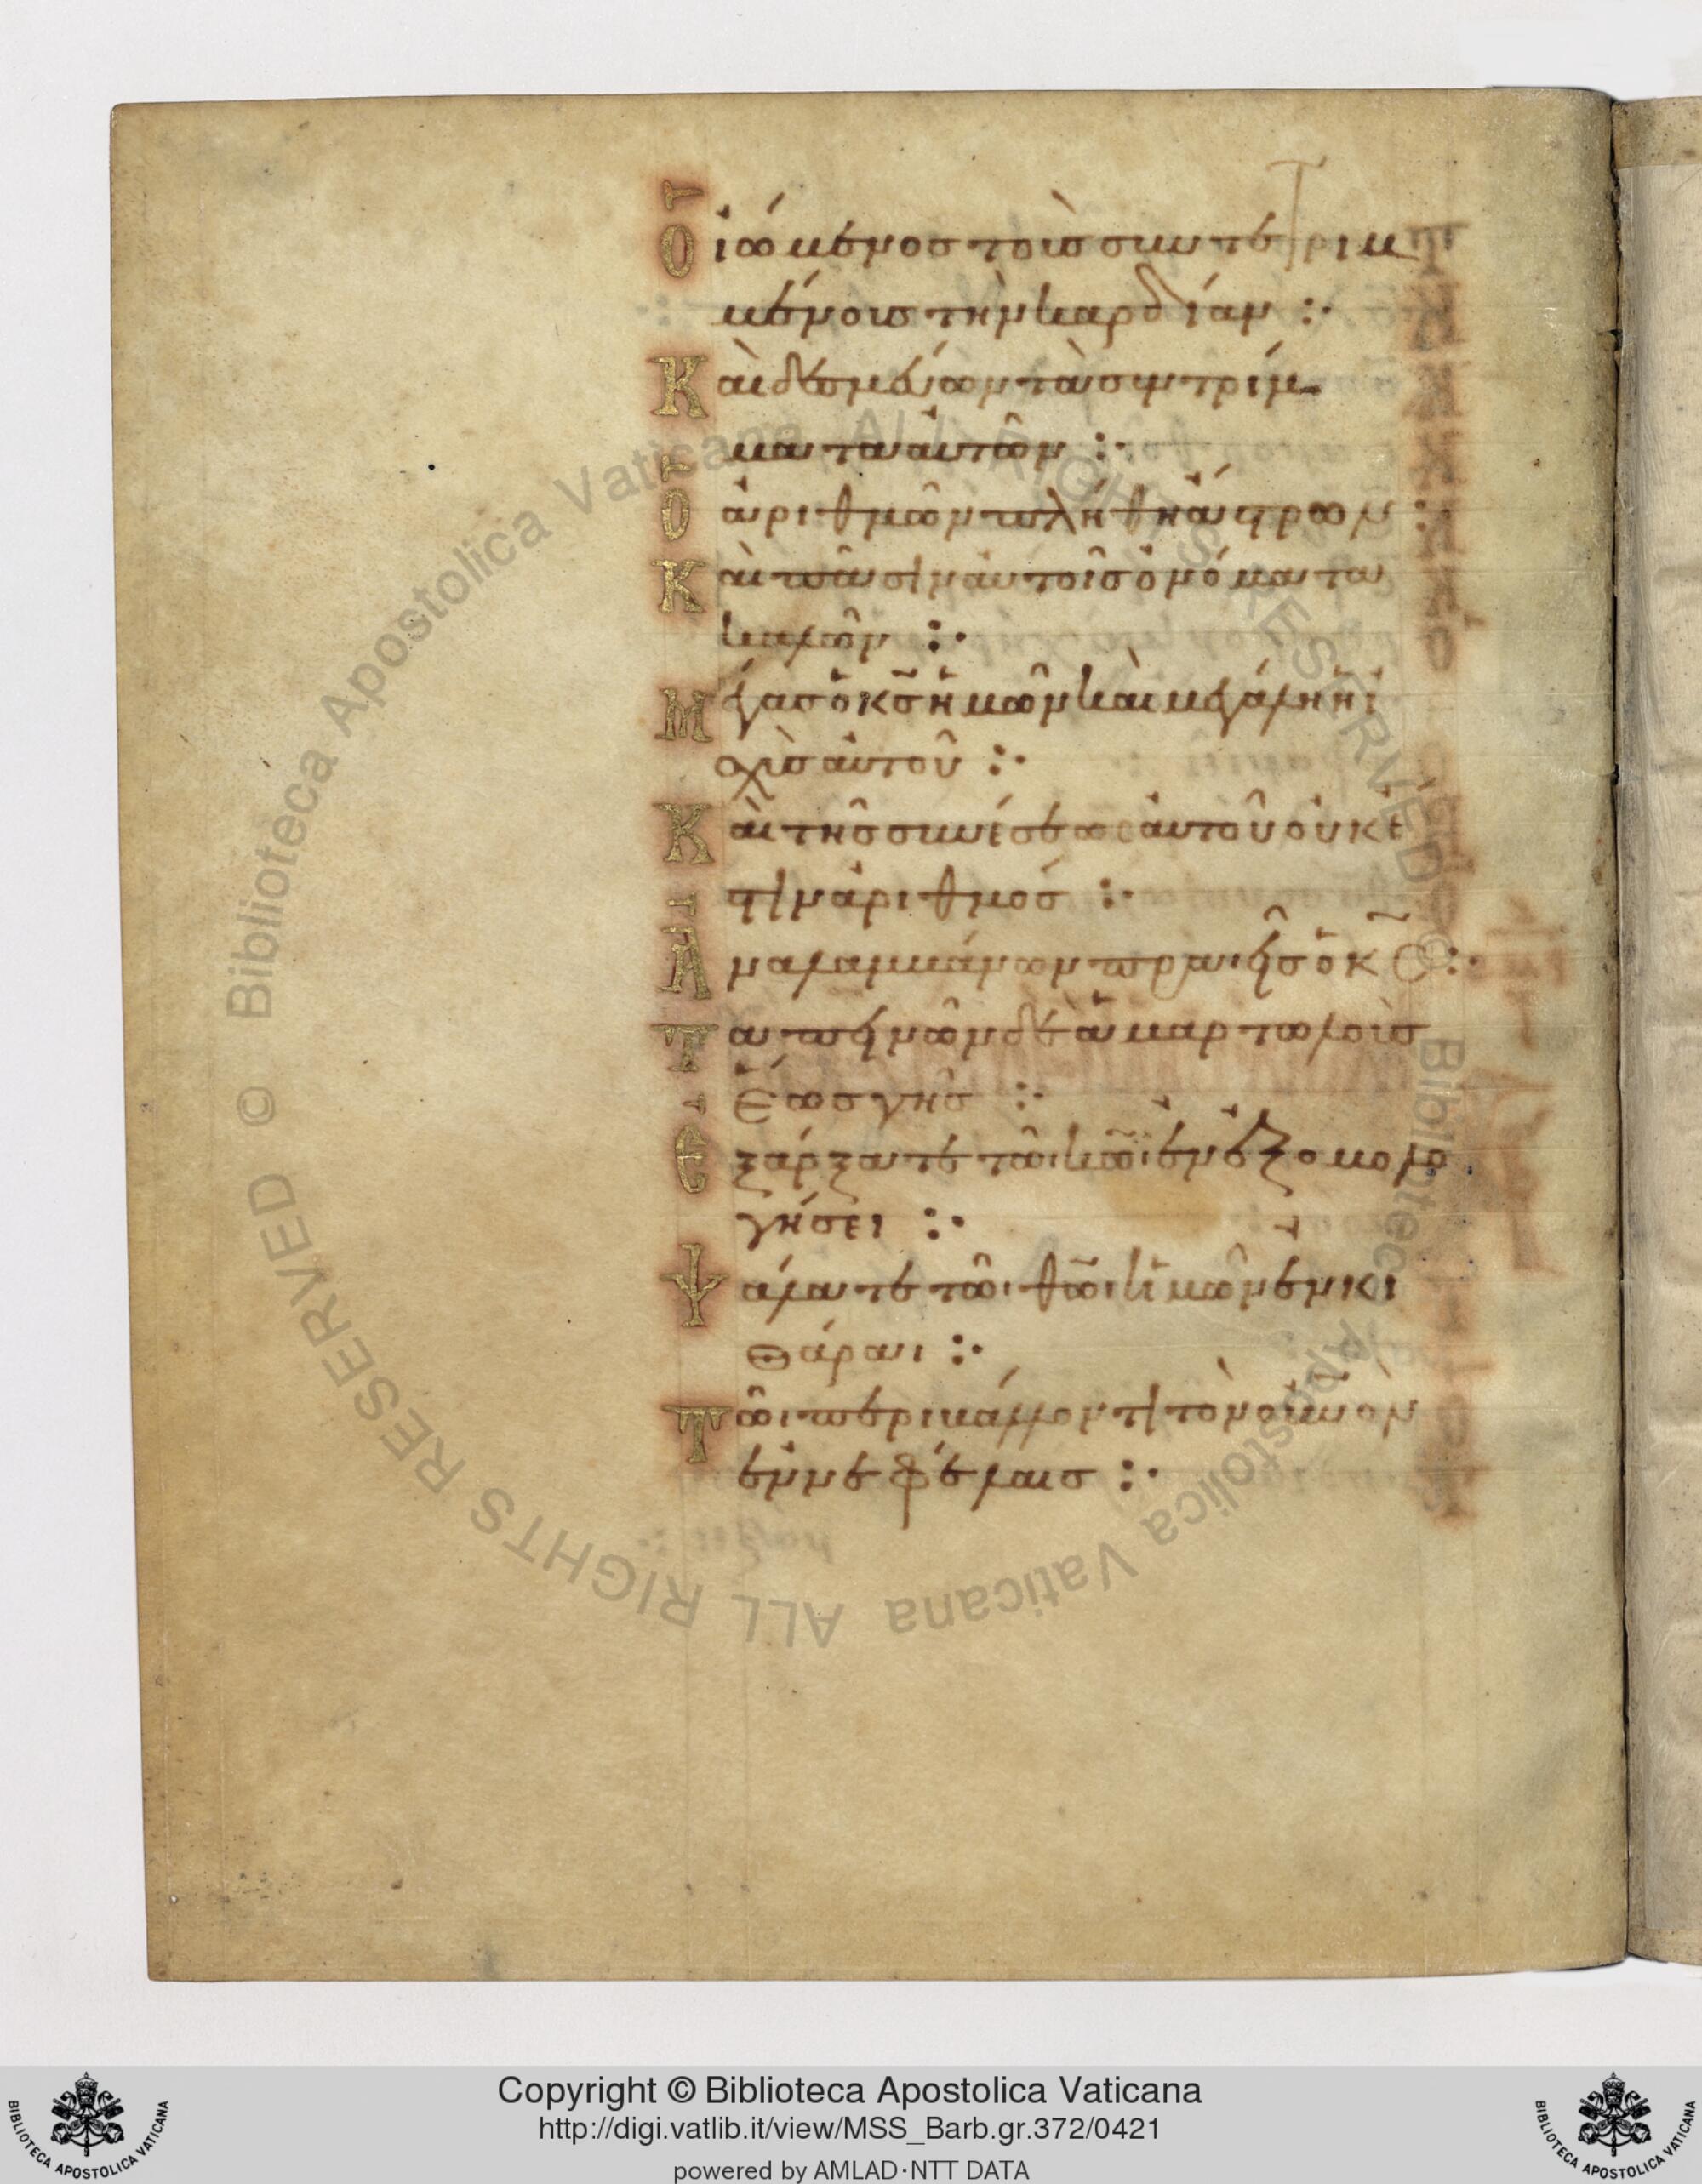 Ὁ ἰώμενος τοὺς συντετριμ
μένους τὴν καρδίαν :·
Καὶ δεσμεύων τὰ συντρίμ
ματα αὐτῶν :·
Ὁ ἀριθμῶν πλήθη ἄστρων :·
Καὶ πᾶσιν αὐτοῖς ὀνόματα
καλῶν :·
Μέγας ὁ κς ἡμῶν καὶ μεγάλη ἡ ἰ
σχὺς αὐτοῦ :·
Καὶ τῆς συνέσεως αὐτοῦ οὐκ ἔ
στιν ἀριθμός :·
Ἀναλαμβάνων πραεῖς ὁ κς :·
Ταπεινῶν δὲ ἁμαρτωλοὺς
ἕως γῆς :·
Ἐξάρξατε τῶι κωι ἐν ἐξομολο
γήσει :·
Ψάλατε τῶι θωι ἡμῶν ἐν κι
θάραι :·
Τῶι περιβάλλοντι τὸν οὐνὸν
ἐν νεφέλαις :·
Copyright © Biblioteca Apostolica Vaticana
http://digi.vatlib.it/view/MSS_Barb.gr.372/0421
powered by AMLAD·NTT DATA
© Biblioteca Apostolica Vaticana ALL RIGHTS RESERVED
© Biblioteca Apostolica Vaticana ALL RIGHTS RESERVED
BIBLIOTECA APOSTOLICA VATICANA
BIBLIOTECA APOSTOLICA VATICANA